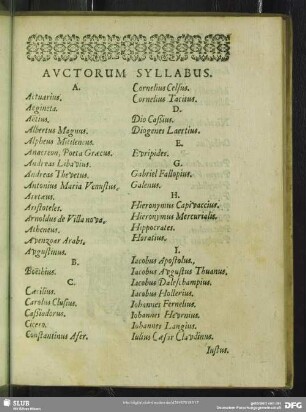 AVCTORUM SYLLABUS.
A.
Actuarius.
Aegineta.
Aetius.
Albertus Magnus.
Alpheus Mitilenæus.
Anacreon, Poeta Græcus.
Andreas Libavius.
Andreas Thevetus.
Antonius Maria Venustus.
Aretæus.
Aristoteles.
Arnoldus de Villa nova.
Athenæus.
Avenzoar Arabs.
Avgustinus.
B.
Boëthius.
C.
Cæcilius.
Carolus Clusius.
Cassiodorus.
Cicero.
Constantinus Afer.
Cornelius Celsus.
Cornelius Tacitus.
D.
Dio Cassius.
Diogenes Laertius.
E.
Evripides.
G.
Gabriel Fallopius.
Galenus.
H.
Hieronymus Capivaccius.
Hieronymus Mercurialis.
Hippocrates.
Horatius.
I.
Iacobus Apostolus.
Iacobus Avgustus Thuanus.
Iacobus Daleschampius.
Iacobus Hollerius.
Iohannes Fernelius.
Iohannes Hevrnius.
Iohannes Langius.
Iulius Cæsar Clavdinus.
Iustus.
SLUB
DFG